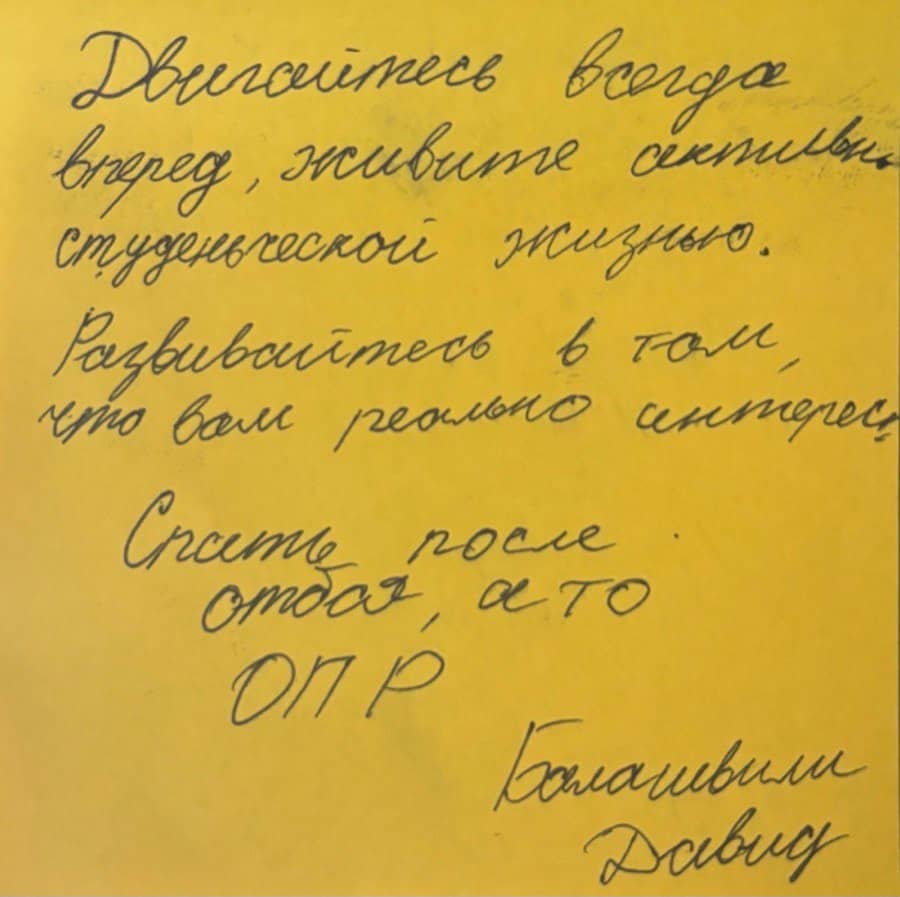 Двигайтесь всегда
вперед, живите активн
студеньческой жизнью.
Развивайтесь в том,
что вам реально интерес
Спать после
отбоя, а то
ОПР
Балашвили
Давид